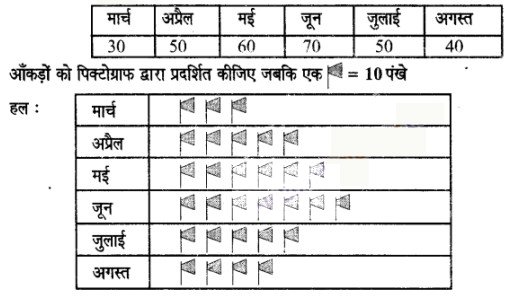 मार्च अप्रैल मई जून जुलाई अगस्त
30 50 60 70 50 40
आँकड़ों को पिक्टोग्राफ द्वारा प्रदर्शित कीजिए जबकि एक = 10 पंखे
हल :
मार्च
अप्रैल
मई
जून
जुलाई
अगस्त